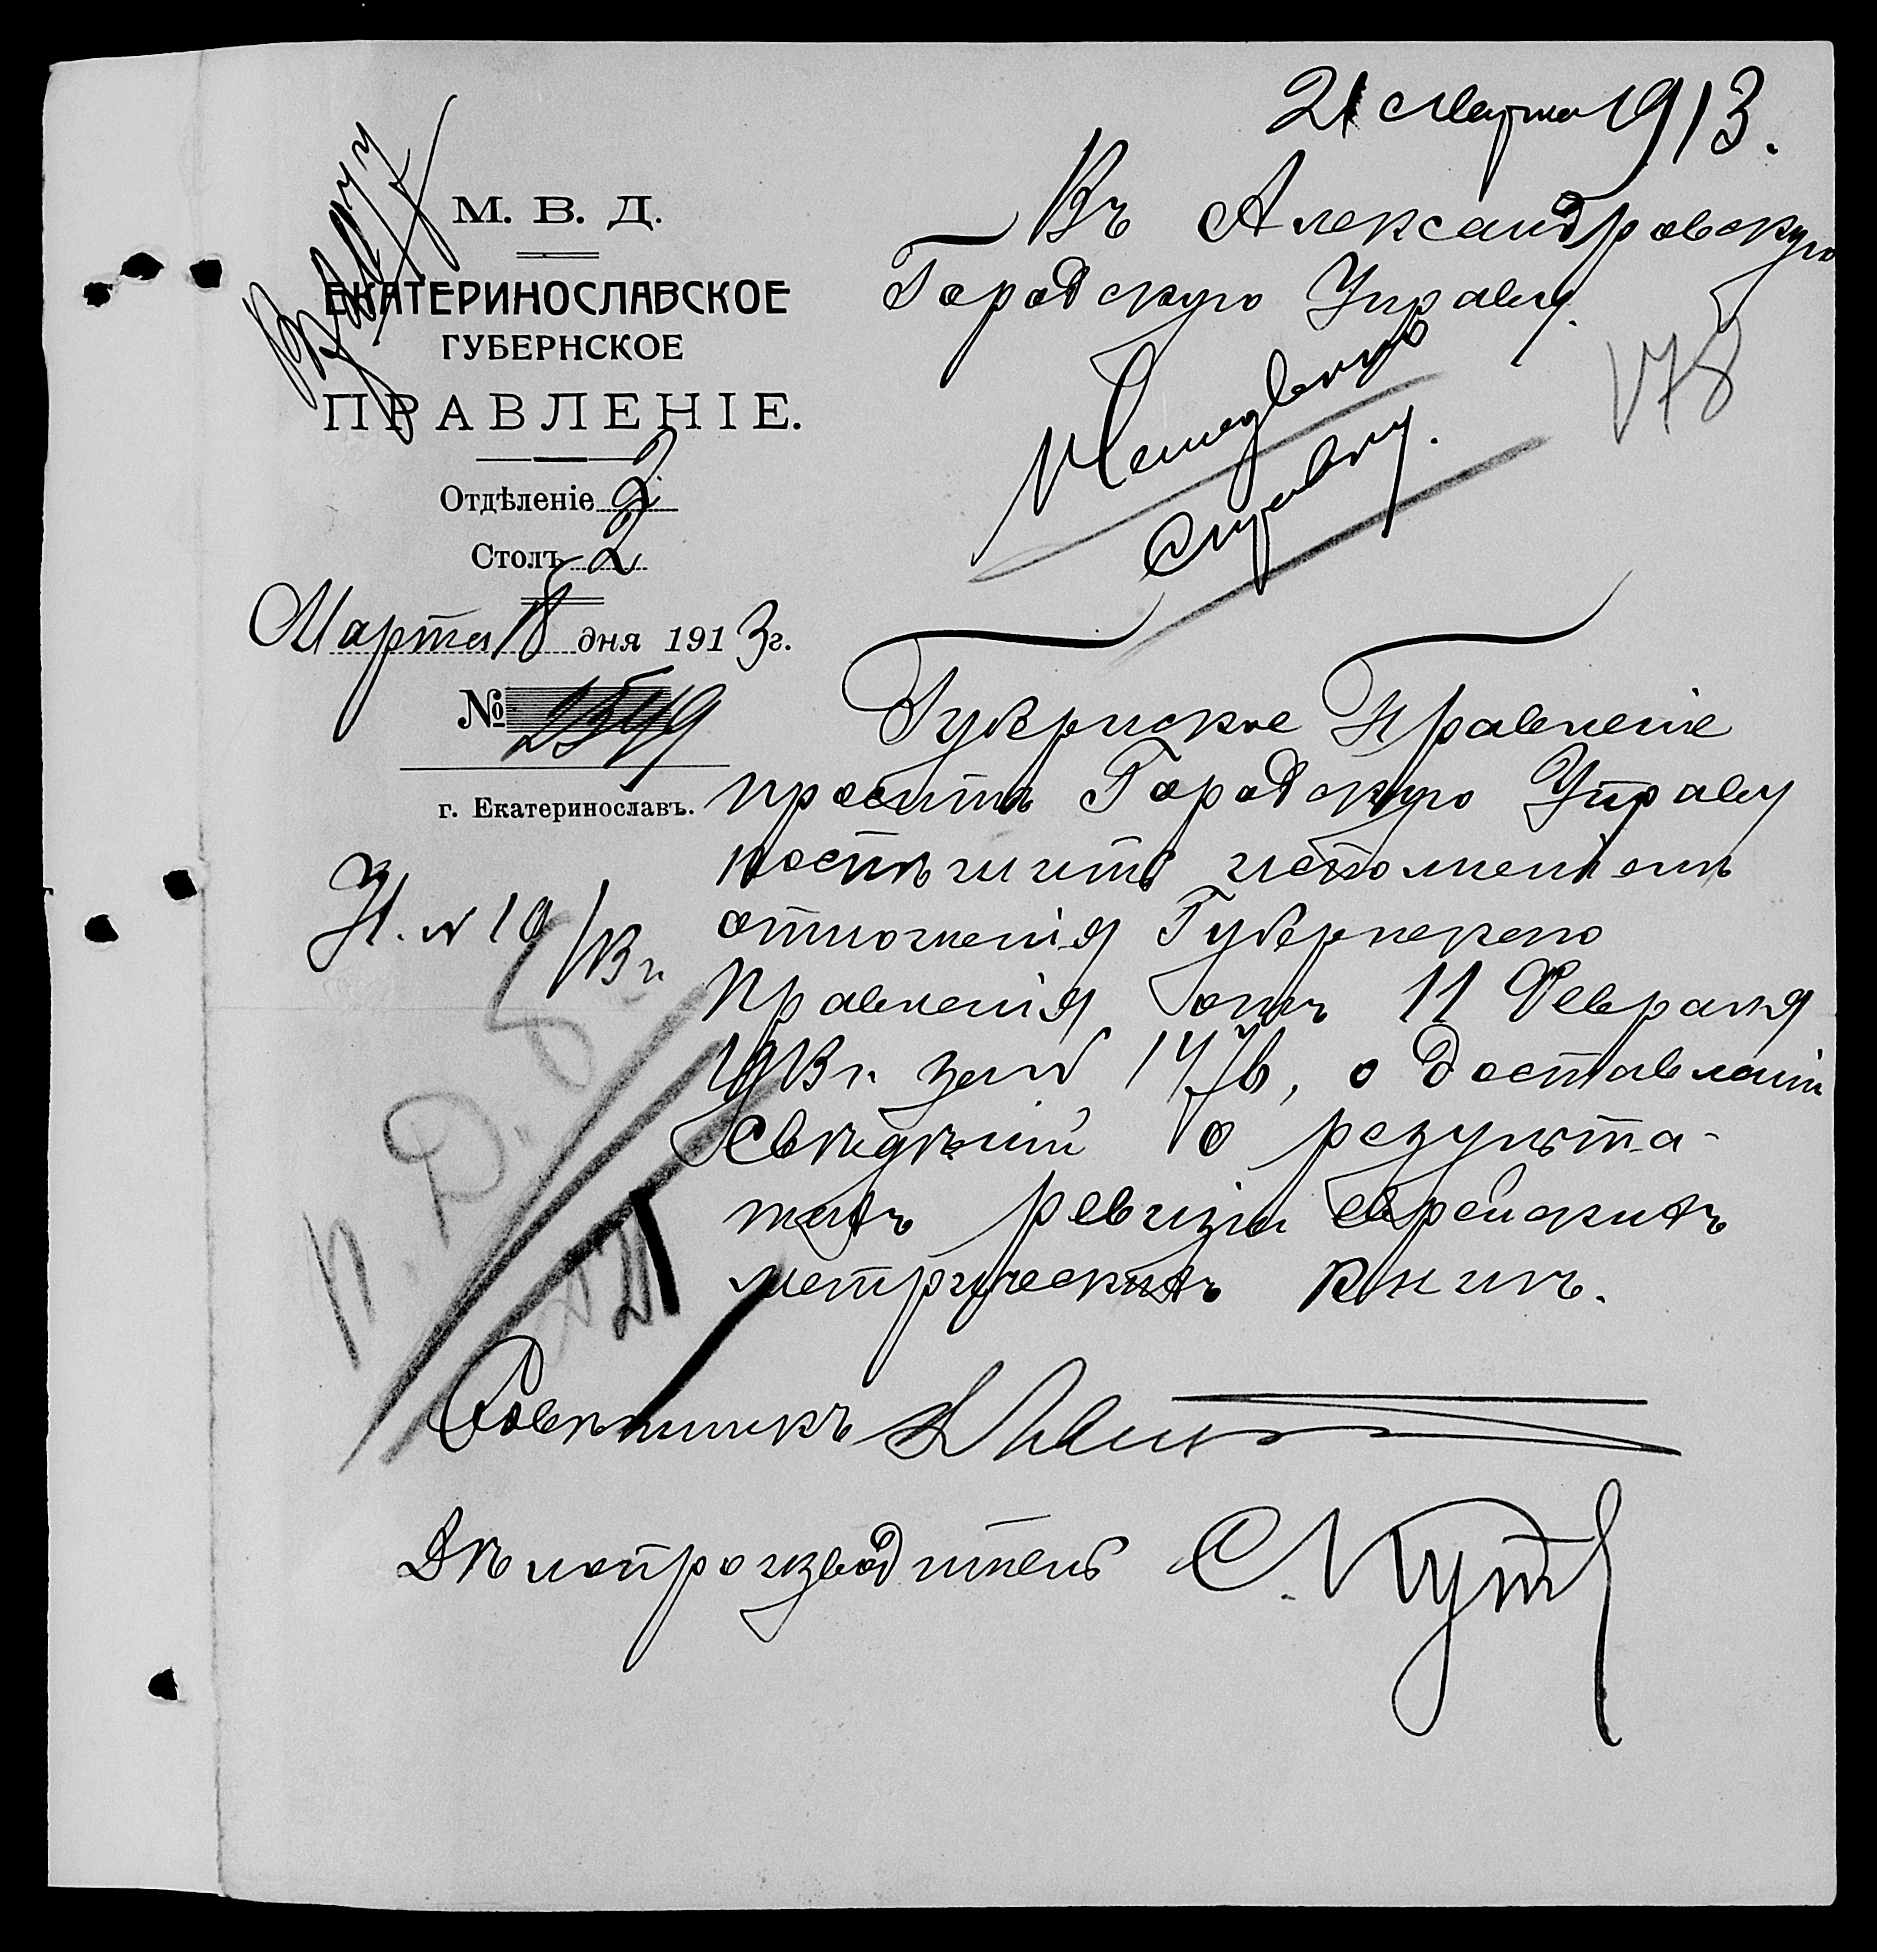 21 Марта 1913.
М. В. Д.
ЕКАТЕРИНОСЛАВСКОЕ
ГУБЕРНСКОЕ
ПРАВЛЕНІЕ.
Отдѣленіе 2
Столъ 2
Марта 18 дня 1913 г.
№ 2549
г. Екатеринославъ.
Н. № 10/13 г.
Въ Александровскую
Городскую Управу.
178
справку.
Губернское Правленіе
проситъ Городскую Управу
поспѣшить исполненіемъ
отношенія Губернскаго
Правленія отъ 11 Февраля
1913 г. за № 1476, о доставленіи
свѣдѣній о результа-
тахъ ревизіи еврейскихъ
метрическихъ книгъ.
Совѣтникъ
Дѣлопроизводитель С.